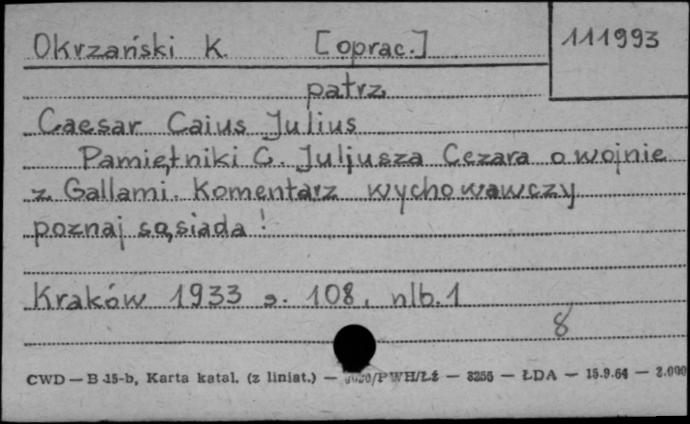 Okrzański K. [oprac.] 111993
patrz
Caesar Caius Julius
Pamiętniki C. Juljusza Cezara o wojnie
z Gallami. Komentarz wychowawczy
poznaj sąsiada!
Kraków 1933 s. 108, nlb. 1
8
CWD — B-15-b, Karta katal. (z liniat.) — /PWH/Łź — 3255 — ŁDA — 15.9.64 — 2.000